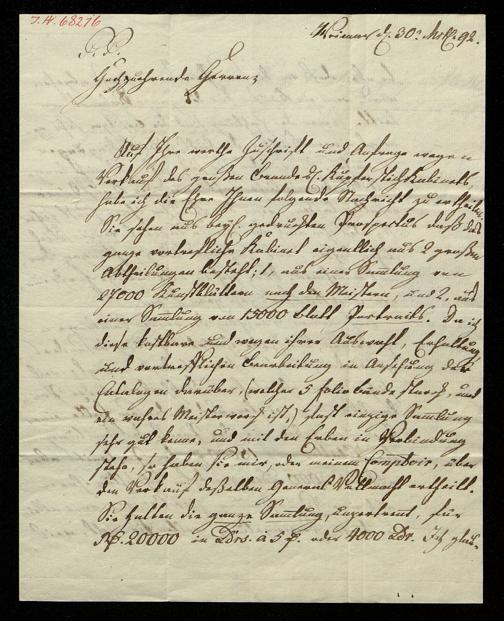 I.N. 68276
Weimar d. 30. 92.
P. P.
Hochzuehrende Herren,
Auf Ihre werthe Zuschrift und Anfrage wegen
Verkauf des Kupferstichkabinets
habe ich die Ehre Ihnen folgende Nachricht zu ertheilen.
Sie sehen aus beyl. gedruckten Prospectus daß das
ganze vortrefliche Kabinet eigentlich aus 2 großen
Abtheilungen besteht; 1, aus einer Samlung von
27000 Kunstblättern nach den Meistern, und 2, aus
einer Samlung von 15000 blatt Portraits. Da ich
diese kostbare und wegen ihrer Auswahl, Erhaltung
und vortreflichen bearbeitung in Ansehung des
Catalogen darüber, (welcher 5 foliobände stark, und
ein wahres Meisterwerk ist,) fast einzige Samlung
sehr gut kenne, und mit den Erben in Verbindung
stehe, so haben Sie mir, oder meinem Comptoir, über
den Verkauf deßelben General Vollmacht ertheilt.
Sie halten die ganze Samlung, unzertrent, für
20000 in Ldrs. à 5 oder 4000 Ldr. Ich glau-